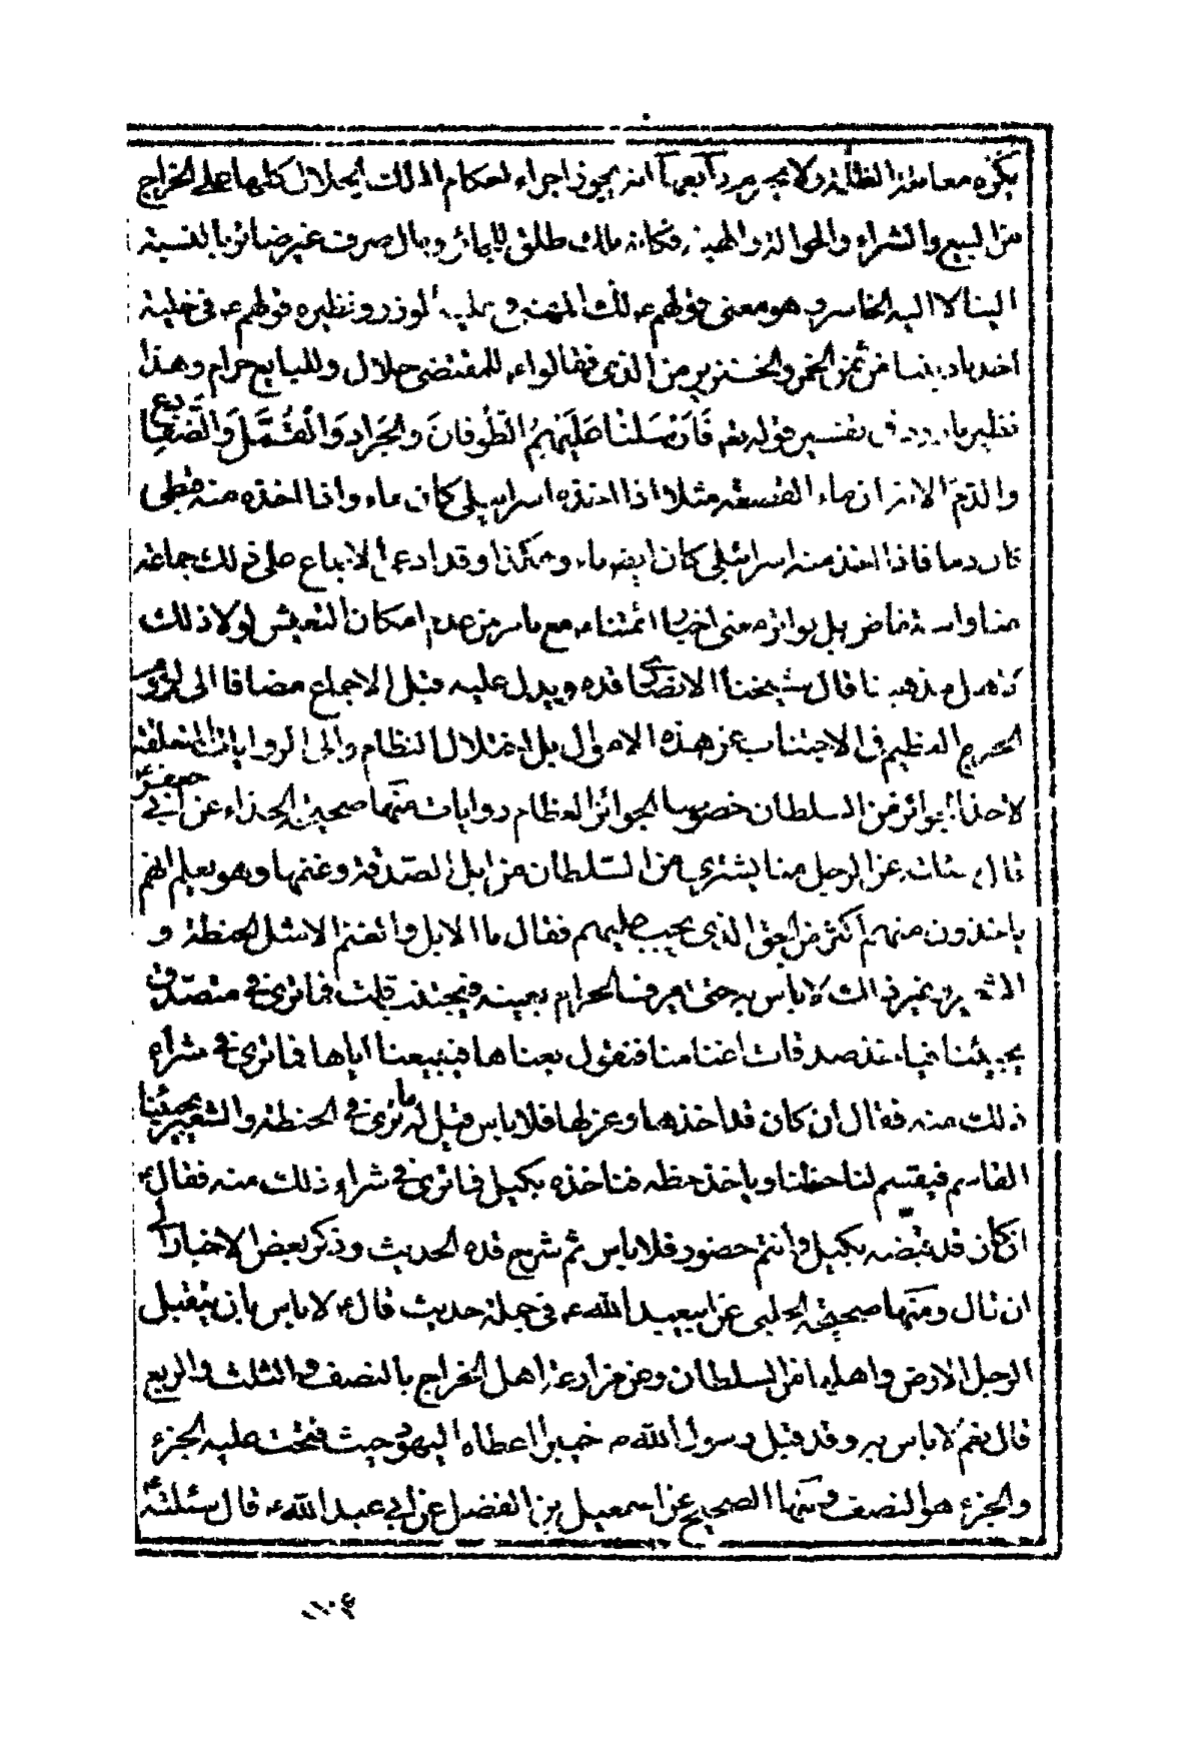 يكره معاملة الظلمة ولا يحرم انه يجوز اجراء احكام الملك الحلال كلها على الخراج
من البيع والشراء والحوالة والهبة فكانه ملك طلق للجائر ومال صرف غير ضائر بالنسبة
الينا لا اليه الخاسر وهو معنى قولهم ع لك المهنا وعليه الوزر ونظيره قولهم ع فى حلية
اخذ من ثمن الخمر والخنزير من الذى فقالوا ع للمقتضى حلال وللبايع حرام وهذا
نظير ما ورد فى تفسير قوله تعه فَاَرْسَلْنا عَلَيْهِمُ الطُّوفانَ وَالجَرادَ وَالْقُمَّلَ وَالضَّفادِعَ
والدم الا ان ماء مثلا اذا اخذه اسرائيلى كان ماء واذا اخذه منه قبطى
كان دما فاذا اخذ منه اسرائيلى كان ايضا ماء وهكذا وقد ادعى الاجماع على ذلك جماعة
منا واستفاض بل تواتر معنى اخبار ائمتنا ع مع ما مر من عدم امكان التعيش لولا ذلك
مذهبنا قال شيخنا الانصارى قده ويدل عليه قبل الاجماع مضافا الى لزوم
الحرج العظيم فى الاجتناب عن هذه الاموال بل اختلال النظام والى الروايات المتعلقة
لاخذ الجوائز من السلطان خصوصا الجوائز العظام روايات منها صحيحة الحذاء عن ابى جعفر ع
قال سئلته عن الرجل منا يشترى من السلطان من ابل الصدقة وغنمها وهو يعلم انهم
ياخذون منهم اكثر من الحق الذى يجب عليهم فقال ما الابل والغنم الا مثل الحنطة و
الشعير وغير ذلك لا باس به حتى تعرف الحرام بعينه فيجتنب قلت فما ترى فى متصدق
يجيئنا فياخذ صدقات اغنامنا فنقول بعناها فيبيعنا اياها فما ترى فى شراء
ذلك منه فقال ان كان قد اخذها وعزلها فلا باس قيل له ما ترى فى الحنطة والشعير يجيئنا
القاسم فيقسم لنا حظنا وياخذ حظه فناخذه بكيل فما ترى فى شراء ذلك منه فقال ع
ان كان قد قبضه بكيل وانتم حضور فلا باس ثم شرح قده الحديث وذكر بعض الاخبار الى
ان قال ومنها صحيحة الحلبى عن ابيعبد الله ع فى جملة حديث قال ع لا باس بان يتقبل
الرجل الارض واهلها من السلطان وعن مزارعة اهل الخراج بالنصف والثلث والربع
قال نعم لا باس به وقد قبل رسول الله ص خيبر اعطاها اليهود حيث فتحت عليه بالجزء
والجزء هو النصف ومنها الصحيح عن اسمعيل بن الفضل عن ابى عبد الله ع قال سئلته